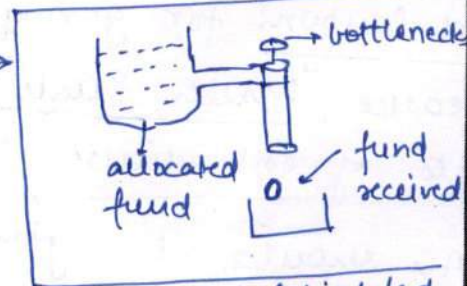 bottleneck
allocated
fund
fund
received